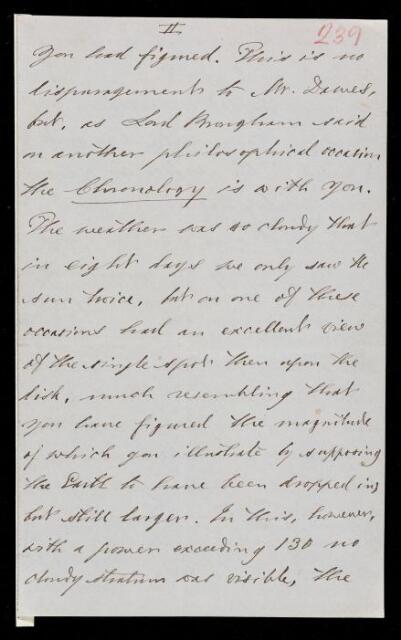 II
239
you had figured. This is no
disparagement to Mr. Dawes,
but, as Lord Brougham said
on another philosophical occasion
the Chronology is with you.
The weather was so cloudy that
in eight days we only saw the
sun twice, but on one of these
occasions had an excellent view
of the single spot then upon the
disk, much resembling that
you have figured the magnitude
of which you illustrate by supposing
the Earth to have been dropped in,
but still larger. In this, however,
with a power exceeding 130 no
cloudy stratum was visible, the